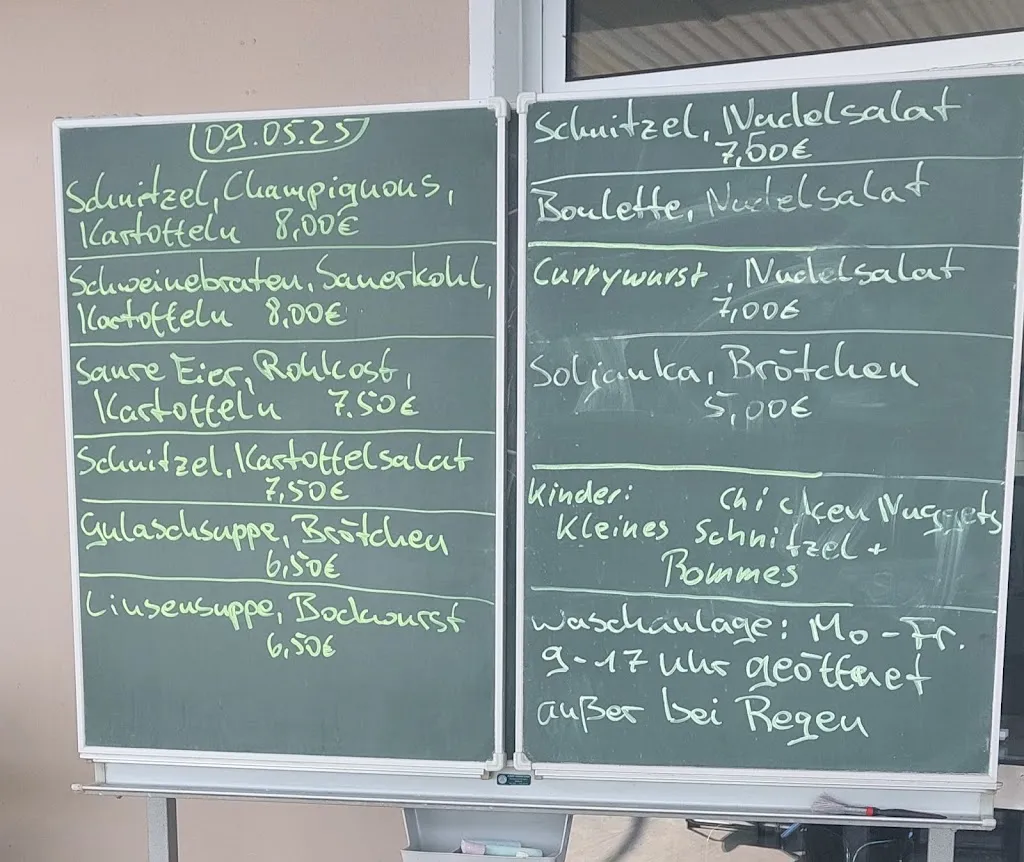 09.05.25
Schnitzel, Champignons,
Kartoffeln 8,00€
Schweinebraten, Sauerkohl,
Kartoffeln 8,00€
Saure Eier, Rohkost,
Kartoffeln 7.50€
Schnitzel, Kartoffelsalat
7,50€
Gulaschsuppe, Brötchen
6,50€
Linsensuppe, Bockwurst
6,50€
Schnitzel, Nudelsalat
7,50€
Boulette, Nudelsalat
Currywurst, Nudelsalat
7,00€
Soljanka, Brötchen
5,00€
Kinder: Chicken Nuggets
Kleines Schnitzel +
Pommes
Waschanlage: Mo - Fr.
9-17 Uhr geöffnet
außer bei Regen